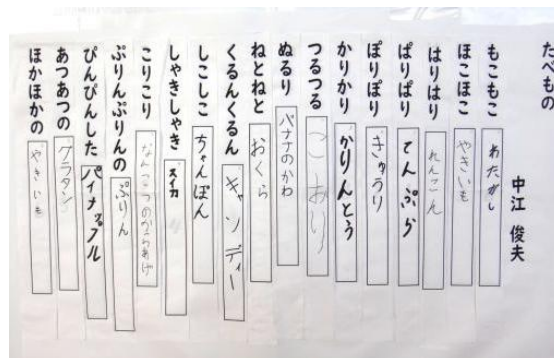 たべもの
中江 俊夫
もこもこ わたがし
ほこほこ やきいも
はりはり れんこん
ぱりぱり てんぷら
ぽりぽり きゅうり
かりかり かりんとう
つるつる こおり
ぬるり バナナのかわ
ねとねと おくら
くるんくるん キャンディー
しこしこ ちゃんぽん
しゃきしゃき スイカ
こりこり なんこつのからあげ
ぷりんぷりんの ぷりん
ぴんぴんした パイナップル
あつあつの グラタン
ほかほかの やきいも